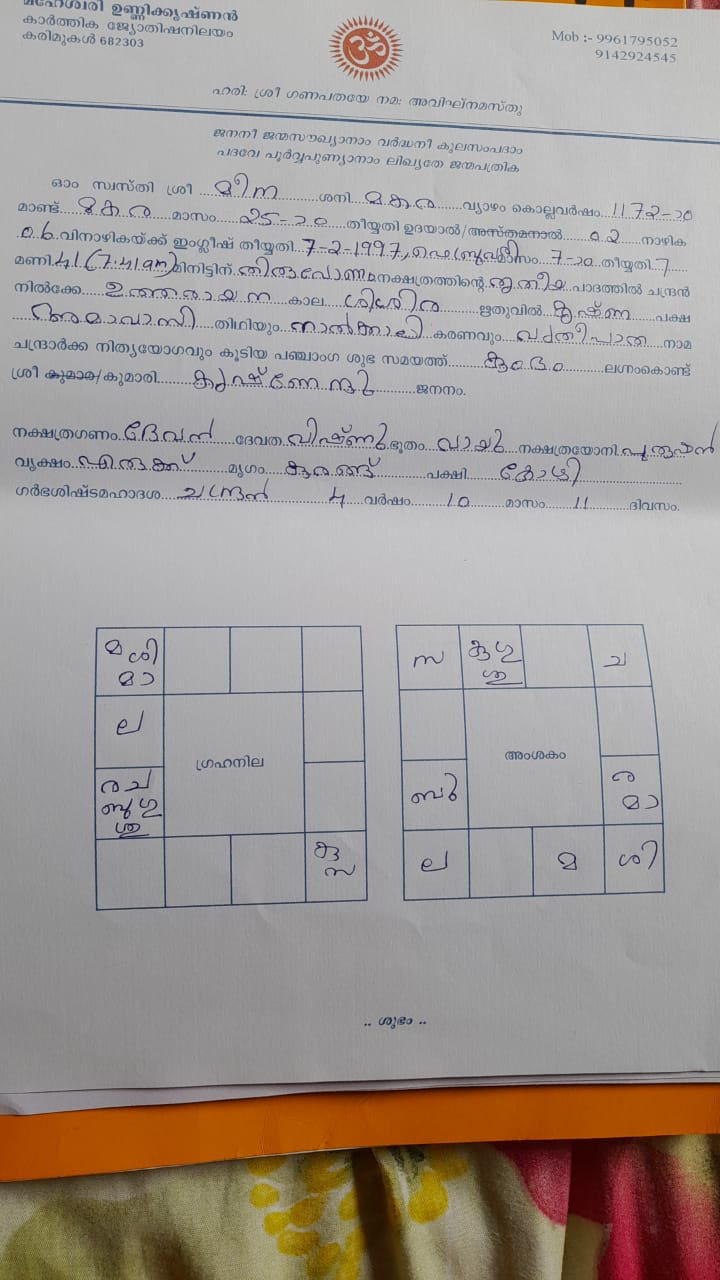 മഹേശ്വരി ഉണ്ണിക്കൃഷ്ണൻ
കാർത്തിക ജ്യോതിഷനിലയം
കരിമുകൾ 682303
Mob :- 9961795052
9142924545
ഹരി: ശ്രീ ഗണപതയേ നമ: അവിഘ്നമസ്തു
ജനനീ ജന്മസൗഖ്യാനാം വർദ്ധനീ കുലസംപദാം
പദവേ പൂർവ്വപുണ്യാനാം ലിഖ്യതേ ജന്മപത്രിക
ഓം സ്വസ്തി ശ്രീ ...മീന...ശനി ...മകര...വ്യാഴം കൊല്ലവർഷം...1172-ാം
മാണ്ട്...മകര...മാസം...25-ാം...തീയ്യതി ഉദയാൽ/അസ്തമനാൽ...02...നാഴിക
06.വിനാഴികയ്ക്ക് ഇംഗ്ലീഷ് തീയ്യതി.7-2-1997, ഫെബ്രുവരി മാസം...7-ാം തീയ്യതി.7
മണി.41 (7.41am) മിനിട്ടിന് തിരുവോണം നക്ഷത്രത്തിന്റെ തൃതീയ പാദത്തിൽ ചന്ദ്രൻ
നിൽക്കേ...ഉത്തരായന...കാല...ശിശിര...ഋതുവിൽ...കൃഷ്ണ...പക്ഷ
അമാവാസി...തിഥിയും നാൽക്കാലി കരണവും...വ്യതീപാത...നാമ
ചന്ദ്രാർക്ക നിത്യയോഗവും കൂടിയ പഞ്ചാംഗ ശുഭ സമയത്ത്...കുംഭം...ലഗ്നംകൊണ്ട്
ശ്രീ കുമാര/കുമാരി...കൃഷ്ണേന്ദു...ജനനം.
നക്ഷത്രഗണം..ദേവൻ...ദേവത.വിഷ്ണു.ഭൂതം..വായു...നക്ഷത്രയോനി.പുരുഷൻ
വൃക്ഷം..എരുക്ക്...മൃഗം...കുരങ്ങ്...പക്ഷി...കോഴി
ഗർഭശിഷ്ടമഹാദശ...ചന്ദ്രൻ 4...വർഷം...10...മാസം...11...ദിവസം.
മ ശി
മാ
സ
കു ഗു
ശു
ച
ല
ഗ്രഹനില
അംശകം
ര ച
ബു ഗു
ശു
ബു
ര
മാ
കു
സ
ല
മ
ശി
.. ശുഭം ..